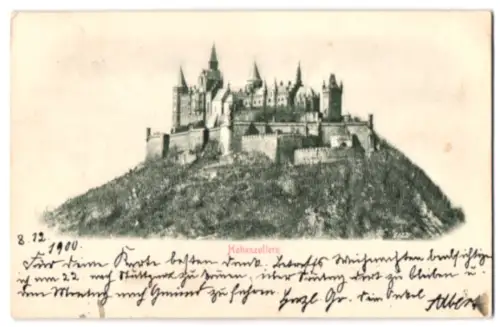 Hohenzollern
8.12
1900.
Für deine Karte besten Dank. Weihnachten beabsichtige
ich am 22. nach Stuttgart zu kommen, über Sonntag dort zu bleiben u.
dann Montag nach Gmünd zu fahren. Herzl. Gr. Dein Onkel Albert